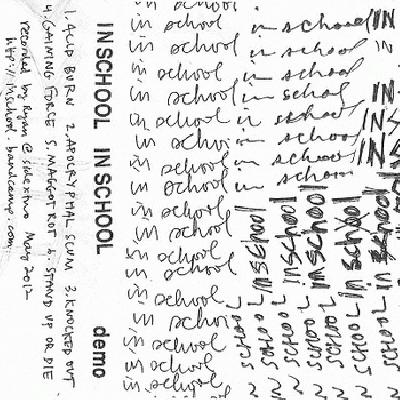 INSCHOOL INSCHOOL demo
1. ACID BURN 2. APOCRYPHAL SCUM 3. KNOCKED OUT
4. GAINING FORCE 5. MAGGOT ROT 6. STAND UP OR DIE
recorded by Ryan @ sidextwo May 2012
http://inschool.bandcamp.com
in school
in school in school IN
in school in school IN
in school in school
in school in school IN
in school in school IN
in school in school IN
in school in school
in school in school
in school
in school
in school
in school
in school
in school
in school
in school
in school
in school
inschool
inschool
inschool
inschool
in school
SCHOOL
SCHOOL
SCHOOL
SCHOOL
SCHOOL